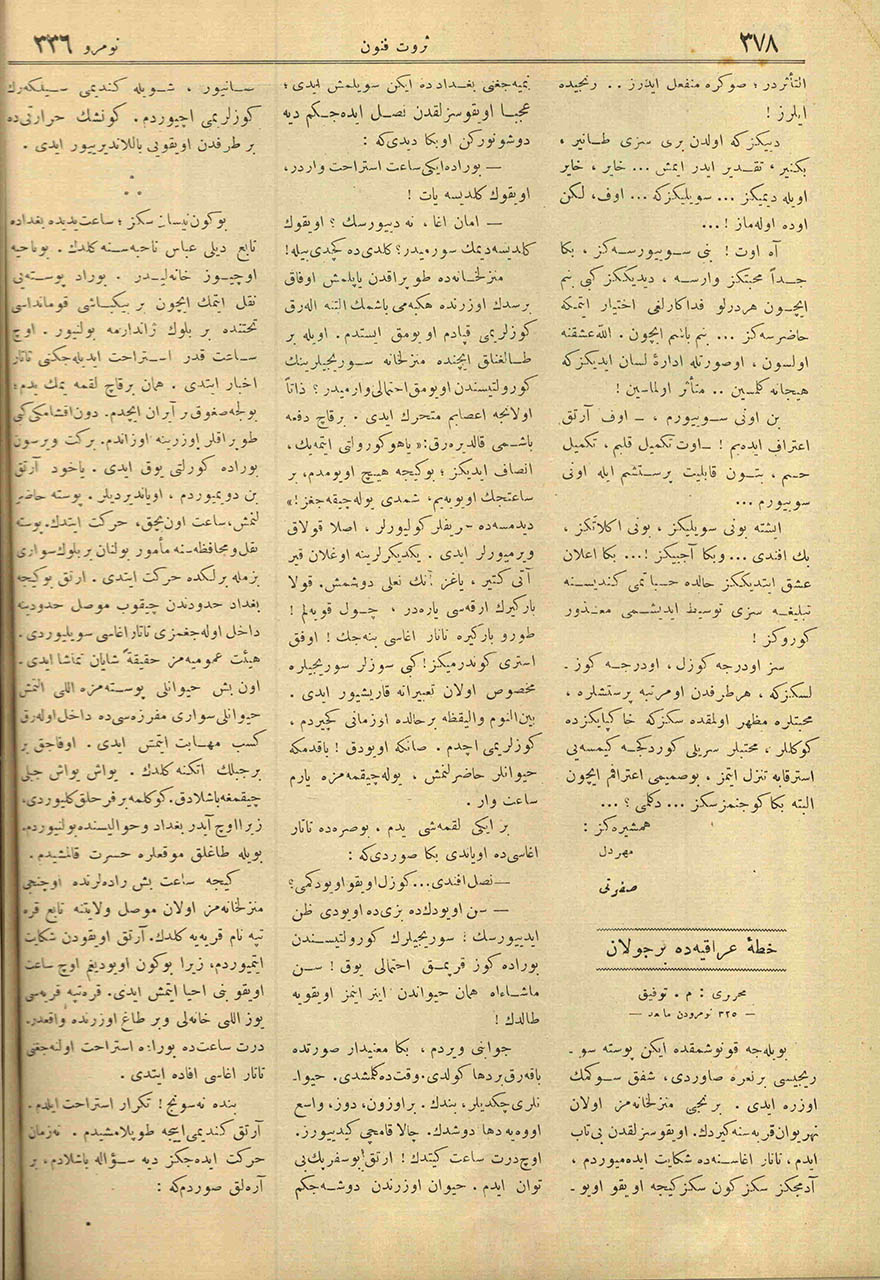 ٣٧٨
ثروت فنون
نومرو ٣٣٦
التأثردر ؛ صوكره منفعل ايدرز .. رنجيده
ايلرز !
ديیكزكه اولدن برى سزى طانير ،
بكنير ، تقدير ايدر ايمش ... خاير ، خاير
اويله ديمیكز ... سويليكزكه ... اوف، لكن
اوده اوله ماز ! ...
آه اوت ! بنى سويیورسه كز ، بكا
جداً محبتكز وارسه ، ديديككز كبى بنم
ايچون هردرلو فداكارلغى اختيار ايتمكه
حاضرسه كز ... بنم باشم ايچون . الله عشقنه
اولسون ، اوصورتله ادارهٔ لسان ايديكزكه
هيجانه كلمسين .. متأثر اولماسين !
بن اونى سويیورم ، ـ اوف آرتق
اعتراف ايده يم ! ـ اوت تكميل قلبم ، تكميل
حسم ، بتون قابليت پرستشم ايله اونى
سويیورم ...
ايشته بونى سويليكز ، بونى اكلاتكز ،
بك افندى ... وبكا آجييكز ! ... بكا اعلان
عشق ايتديككز حالده حسياتمى كنديسنه
تبليغه سزى توسيط ايديشمى معذور
كوروكز !
سز اودرجه كوزل ، اودرجه كوز ـ
لسكزكه ، هرطرفدن اومرتبه پرستشلره ،
محبتلره مظهر اولمقده سكزكه خاكپايكزده
كوكللر ، محتبلر سريلى كوردكجه كيمسه يى
استرقابه تنزل ايتمز ، بوصميمى اعترافم ايچون
البته بكا كوجنمزسكز ... دكلمى ؟ ...
همشيره كز :
مهردل
صفوتى
خطهٔ عراقيه ده برجولان
محررى : م . توفيق
— ٣٣٥ نومرودن مابعد —
بويله جه قونوشمقده ايكن پوسته سو ـ
ريجيسى برنعره صاوردى، شفق سوكمك
اوزره ايدى . برنجى منزلخانه مز اولان
نهروان قريه سنه كيردك. اويقوسزلقدن بى تاب
ايدم ، تاتار اغاسنه ده شكايت ايده ميوردم ،
آدمجكز سكز كون سكز كيجه اويقو اويو ـ
نميه جغنى بغدادده ايكن سويلمش ايدى ؛
عجبا اويقوسزلقدن نصل ايده جكم ديه
دوشونوركن اوبكا ديدى كه :
— بوراده ايكى ساعت استراحت واردر،
اويقوك كلديسه يات !
— امان اغا ، نه دييورسك ؟ اويقوك
كلديسه ديمك سورميدر؟ كلدى ده كچدى بيله !
منزلخانه ده طوپراقدن ياپلمش اوفاق
برسدك اوزرنده هكبه مى باشمك التنه اله رق
كوزلريمى قپادم اويومق ايستدم . اويله بر
طالغنلق ايچنده منزلخانه سوريجيلرينك
كورولتيسندن اويومق احتمالى وارميدر ؟ ذاتاً
اولانجه اعصابم متحرك ايدى . برقاچ دفعه
باشمى قالديره رق : « ياهو كورولتى ايتمه يك ،
انصاف ايديكز ؛ بوكيجه هيچ اويومدم، بر
ساعتجك اويويه يم، شمدى يوله چيقه جغز ! »
ديدمسه ده حريفلر كوليورلر ، اصلا قولاق
ويرميورلر ايدى . يكديكرلرينه اوغلان قير
آتى كتير ، ياغز آتك نعلى دوشمش. قولا
باركيرك ارقه سى ياره در ، چول قويه لم !
طورو باركيره تاتار اغاسى بنه جك ! اوفق
استرى كوندرميكز! كبى سوزلر سوريجيلره
مخصوص اولان تعبيرانه قاريشيور ايدى .
بين النوم واليقظه برحالده اوزمانى كچيردم ،
كوزلريمى اچدم . صانكه اويودق ! باقدمكه
حيوانلر حاضرلنمش ، يوله چيقمه مزه يارم
ساعت وار .
بر ايكى لقمه شى يدم ، بوصره ده تاتار
اغاسى ده اوياندى بكا صوردى كه :
— نصل افندى... كوزل اويقو اويودكمى؟
— سن اويودك ده بزى ده اويودى ظن
ايدييورسك ؛ سوريجيلرك كورولتيسندن
بوراده كوز قرپمق احتمالى يوق ! سن
ماشاءالله همان حيواندن اينر اينمز اويقويه
طالدك !
جوابنى ويردم ، بكا معنيدار صورتده
باقه رق بردها كولدى. وقت ده كلمشدى. حيوا ـ
نلرى چكديلر ، بندك . براوزون، دوز، واسع
اووه يه دها دوشدك. چالا قامچى كيدييورز.
اوچ درت ساعت كيتدك ! ارتق بوسفر پك بى
توان ايدم . حيوان اوزرندن دوشه جكم
صانيور ، شويله كنديمى سيلكه رك
كوزلريمى اچيوردم . كونشك حرارتى ده
بر طرفدن اويقويى باللانديرييور ايدى .
بوكون نيسان سكز ؛ ساعت يديده بغداده
تابع ديلى عباس ناحيه سنه كلدك . بوناحيه
اوچيوز خانه ليدر . بوراد پوسته يى
نقل ايتمك ايچون بر بيكباشى قومانداسى
تحتنده بر بلوك ژاندارمه بولنيور . اوچ
ساعت قدر استراحت ايديله جكنى تاتار
اخبار ايتدى . همان برقاچ لقمه يمك يدم ؛
بولجه صغوق بر آيران ايچدم. دون اقشامكى كبى
طوپراقلر اوزرينه اوزاندم. بركت ويرسون
بوراده كورلتى يوق ايدى . ياخود آرتق
بن دويميوردم ، اوياندیرديلر . پوسته حاضر
لنمش، ساعت اون بچق، حركت ايتدك. پوسته
نقل ومحافظه سنه مأمور بولنان بر بلوك سوارى
بزمله برلكده حركت ايتدى . ارتق بوكيجه
بغداد حدودندن چيقوب موصل حدودينه
داخل اوله جغمزى تاتار اغاسى سويليوردى .
هيئت عموميه مز حقيقةً شايان تماشا ايدى .
اون بش حيوانلى پوسته مزه اللى التمش
حيوانلى سوارى مفرزه سى ده داخل اوله رق
كسب مهابت ايتمش ايدى . اوفاجق بر
برجبلك اتكنه كلدك . يواش يواش جبلى
چيقمغه باشلادق. كوكلمه برفرحلق كليوردى،
زيرا اوچ آيدر بغداد وحواليسنده بولنيوردم.
بويله طاغلق موقعلره حسرت قالمشيدم .
كيجه ساعت بش راده لرنده اوچنجى
منزلخانه مز اولان موصل ولايتنه تابع قره
تپه نام قريه يه كلدك. آرتق اويقودن شكايت
ايتميوردم، زيرا بوكون اويوديغم اوچ ساعت
اويقو بنى احيا ايتمش ايدى. قره تپه قريه سى
يوز اللى خانه لى وبر طاغ اوزرنده واقعدر.
درت ساعت ده بوراده استراحت اوله جغنى
تاتار اغاسى افاده ايتدى .
بنده نه سونج ! تكرار استراحت ايلدم .
آرتق كنديمى اييجه طوپلامشيدم . نه زمان
حركت ايده جكز ديه سؤاله باشلادم. بر
آره لق صوردم كه :